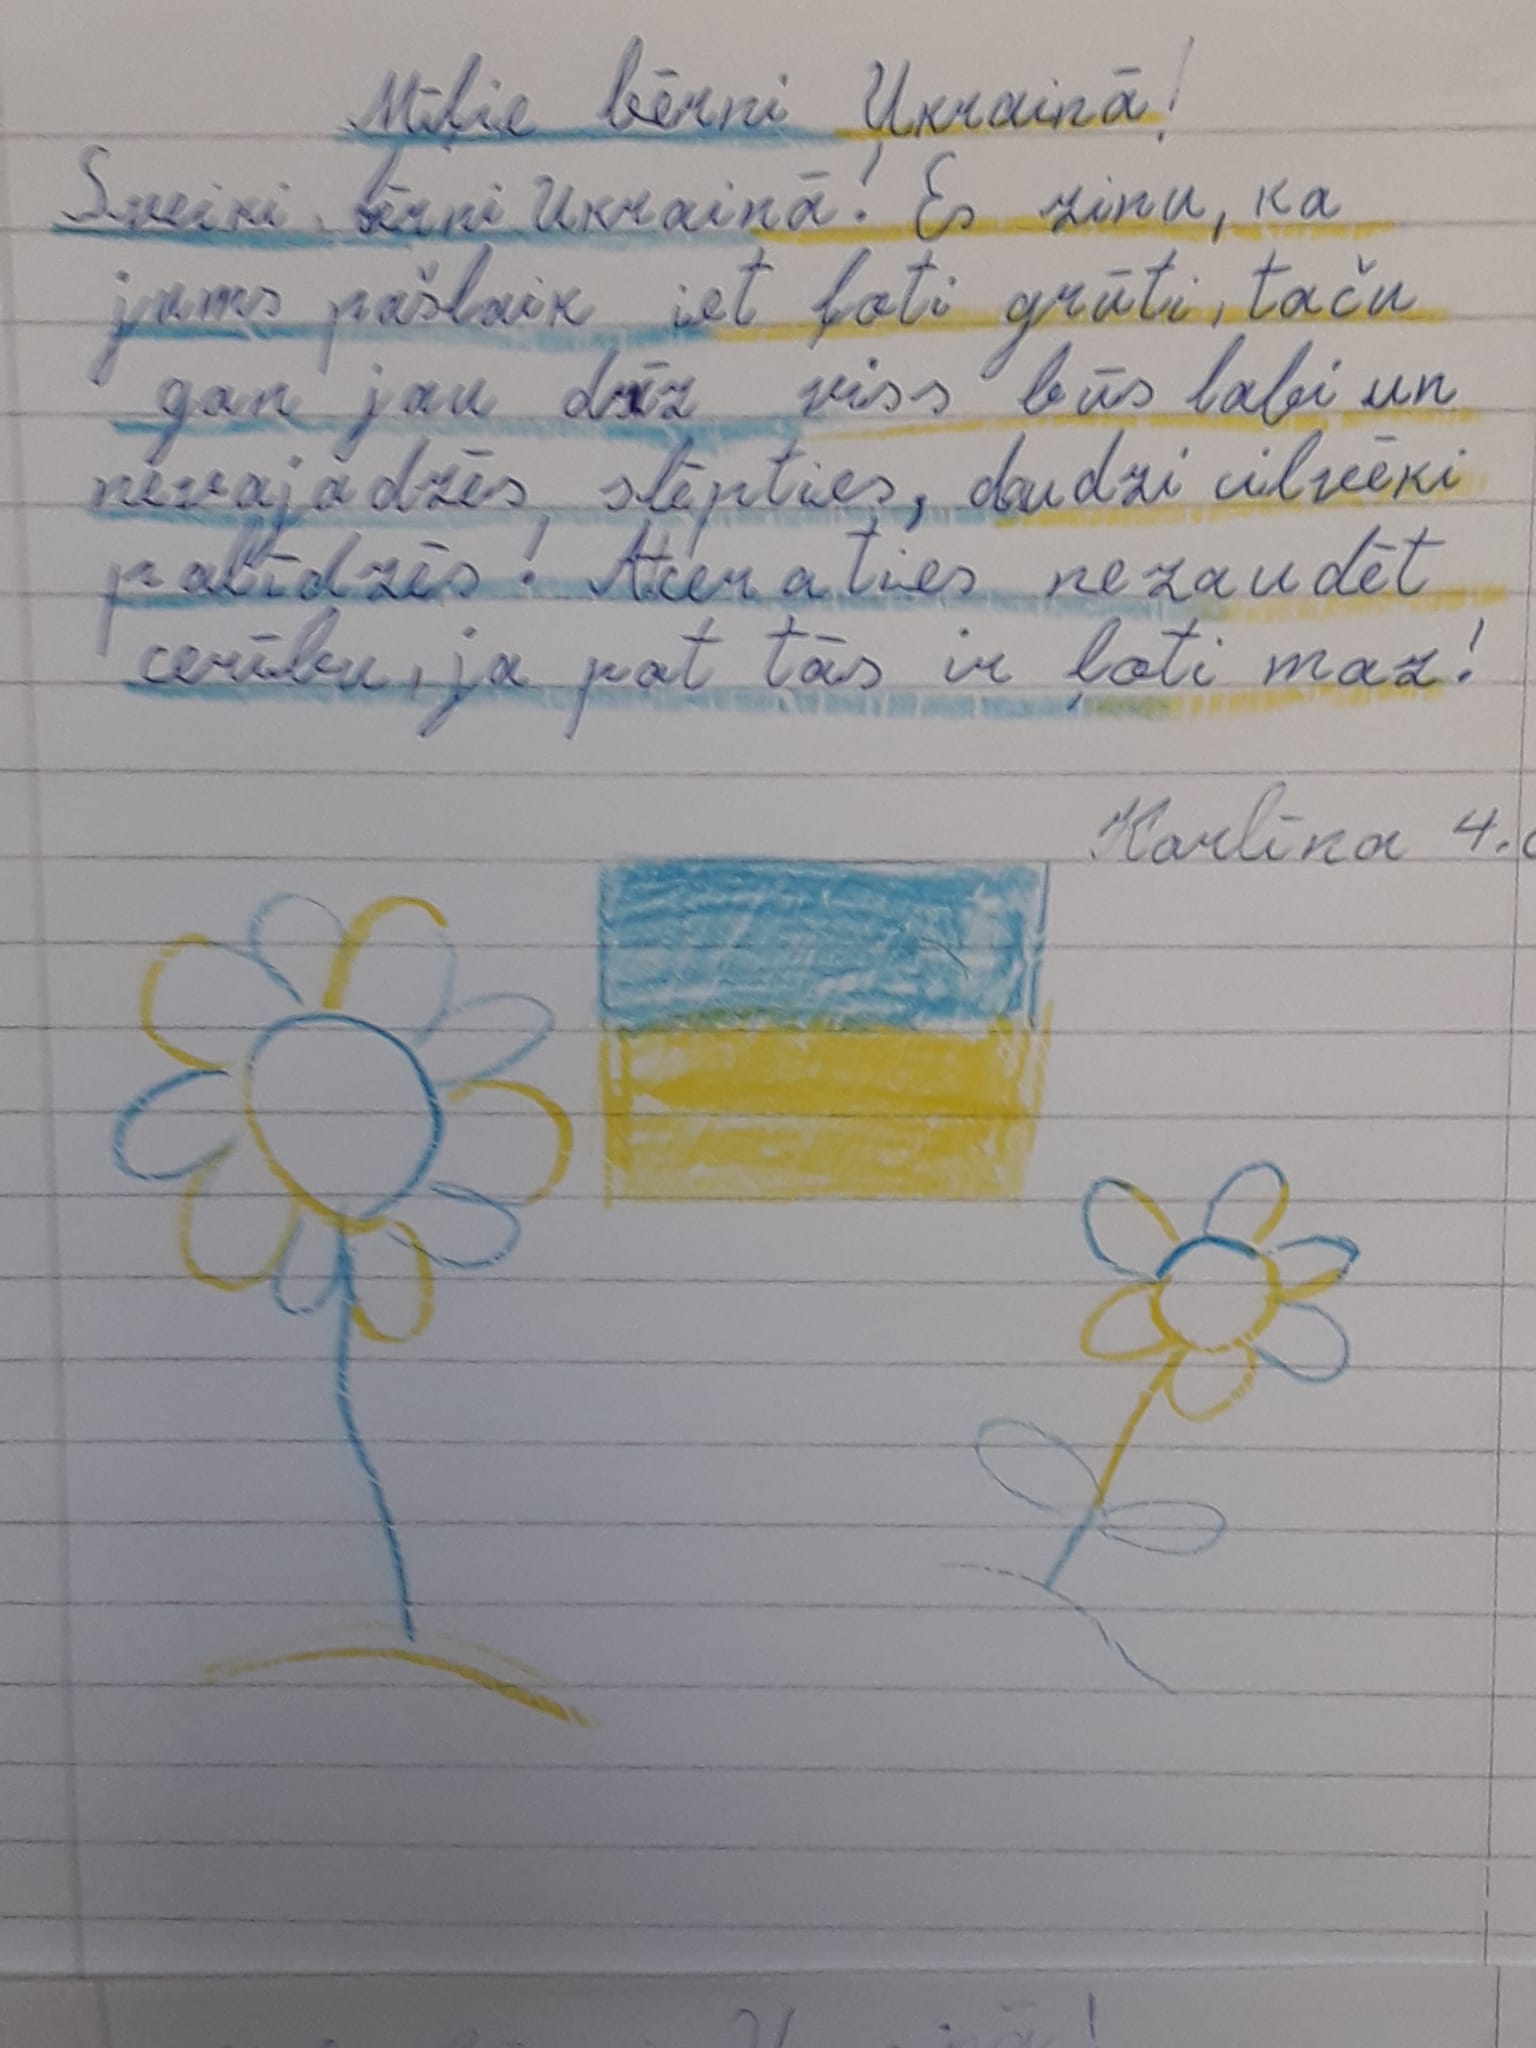 Mīļie bērni Ukrainā!
Sveiki, bērni Ukrainā! Es zinu, ka
jums pašlaik iet ļoti grūti, taču
gan jau drīz viss būs labi un
nevajadzēs slēpties, daudzi cilvēki
palīdzēs! Atceraties nezaudēt
cerību, ja pat tās ir ļoti maz!
Karlīna 4.